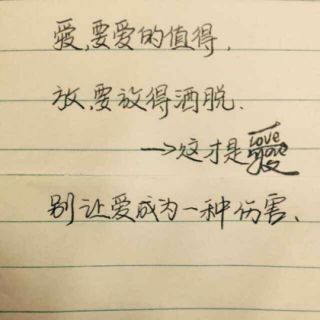 爱,要爱的值得.
放,要放得洒脱.
→这才是愛
别让爱成为一种伤害.